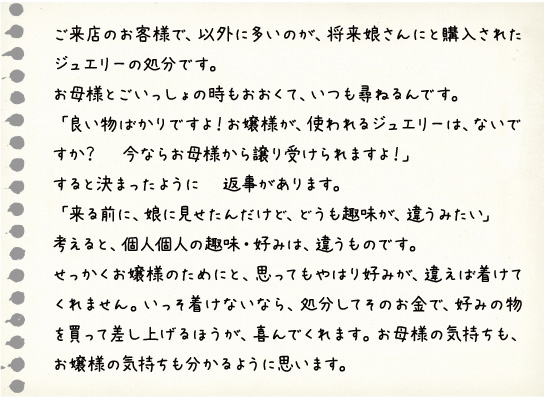 ご来店のお客様で、以外に多いのが、将来娘さんにと購入された
ジュエリーの処分です。
お母様とごいっしょの時もおおくて、いつも尋ねるんです。
「良い物ばかりですよ！お嬢様が、使われるジュエリーは、ないで
すか？　今ならお母様から譲り受けられますよ！」
すると決まったように　返事があります。
「来る前に、娘に見せたんだけど、どうも趣味が、違うみたい」
考えると、個人個人の趣味・好みは、違うものです。
せっかくお嬢様のためにと、思ってもやはり好みが、違えば着けて
くれません。いっそ着けないなら、処分してそのお金で、好みの物
を買って差し上げるほうが、喜んでくれます。お母様の気持ちも、
お嬢様の気持ちも分かるように思います。